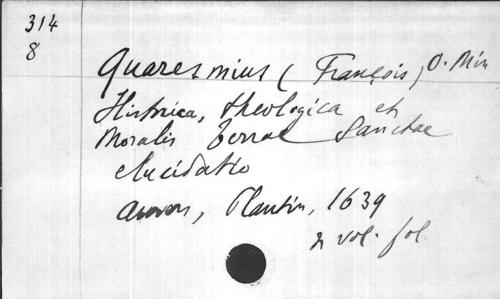 314
8
Quaresmius (François) O. Min
Historica, theologica et
Moralis Terrae Sanctae
elucidatio
Anvers, Plantin, 1639
2 vol. fol.